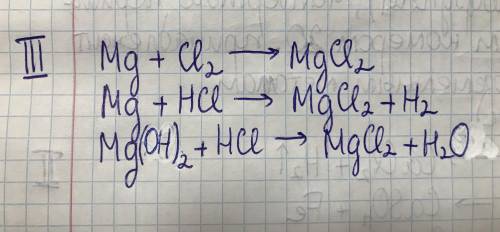 III
Mg + Cl₂ → MgCl₂
Mg + HCl → MgCl₂ + H₂
Mg(OH)₂ + HCl → MgCl₂ + H₂O